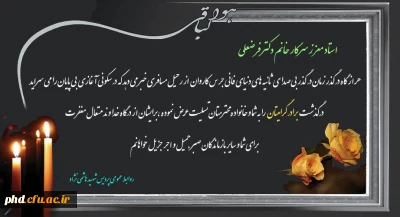 هوالباقی
استاد معزز سرکار خانم دکتر فرضعلی
هر از گاه در گذر زمان در گذر بی صدای ثانیه های دنیای فانی جرس کاروان از رحیل مسافری خبر می دهد که در سکونی آغازی بی پایان را می سراید
درگذشت برادر گرامیتان را به شما و خانواده محترمتان تسلیت عرض نموده، برایشان از درگاه خداوند متعال مغفرت
برای شما و سایر بازماندگان صبر جمیل و اجر جزیل خواهانم
روابط عمومی پردیس شهید هاشمی نژاد
phd.cfu.ac.ir